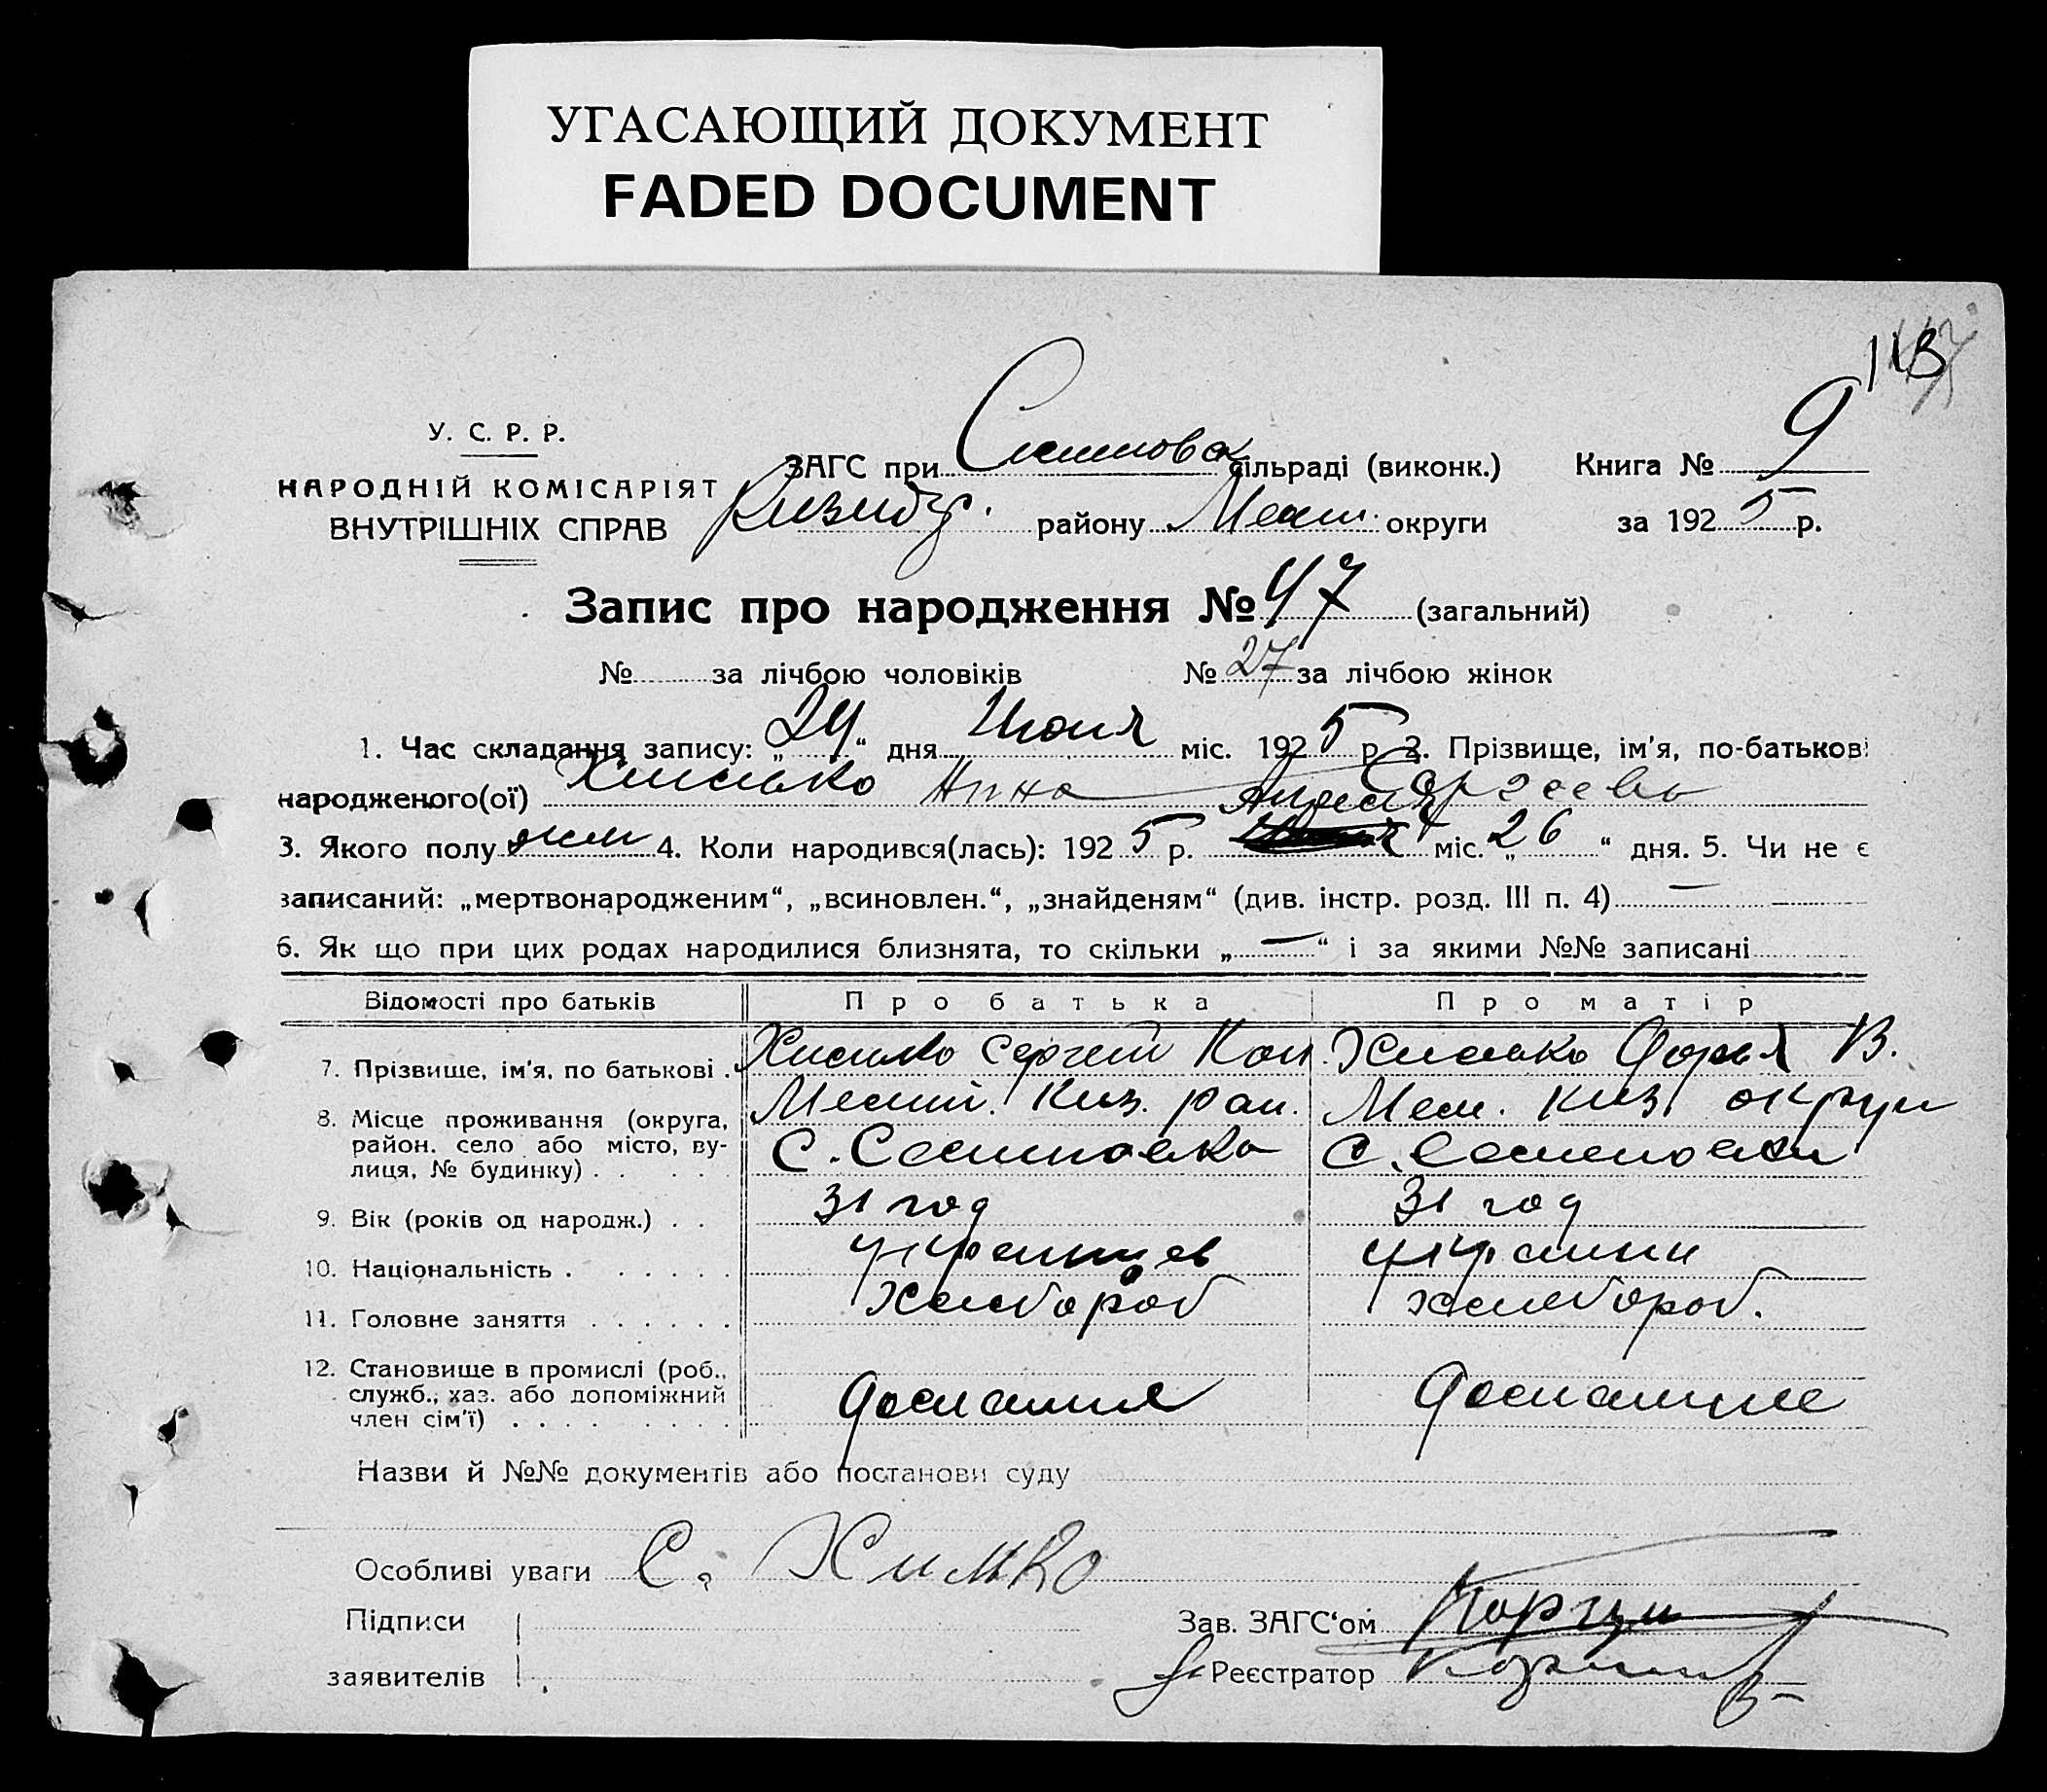 УГАСАЮЩИЙ ДОКУМЕНТ
FADED DOCUMENT
У. С. Р. Р.
НАРОДНІЙ КОМІСАРІЯТ
ВНУТРІШНІХ СПРАВ
ЗАГС при сільраді (виконк.) Книга № 9
району округи за 1925 р.
Запис про народження № 47 (загальний)
№ за лічбою чоловіків № 27 за лічбою жінок
1. Час складання запису: „24“ дня Июня міс. 1925 р 2. Прізвище, ім'я, по-батькові
народженого(ої) Химко Нина
3. Якого полу жен 4. Коли народився(лась): 1925 р. міс. „26“ дня. 5. Чи не є
записаний: „мертвонародженим“, „всиновлен.“, „знайденям“ (див. інстр. розд. III п. 4) —
6. Як що при цих родах народилися близнята, то скільки „—“ і за якими №№ записані
Відомості про батьків Про батька Про матір
7. Прізвище, ім'я, по батькові . Химко Сергей Кон. Химко Дарья В.
8. Місце проживання (округа, район. село або місто, ву-
лиця, № будинку) . . . . Мелит. Киз. с. Мел. Киз округи с.
9. Вік (років од народж.) . . 31 год 31 год
10. Національність . . . . . . украинцев украин
11. Головне заняття . . . . . . хлебороб хлебороб.
12. Становище в промислі (роб., служб., хаз. або допоміжний
член сім'ї) . . . . . . . .
Назви й №№ документів або постанови суду
Особливі уваги С. Химко
Підписи
заявителів
Зав. ЗАГС‘ом
Реєстратор